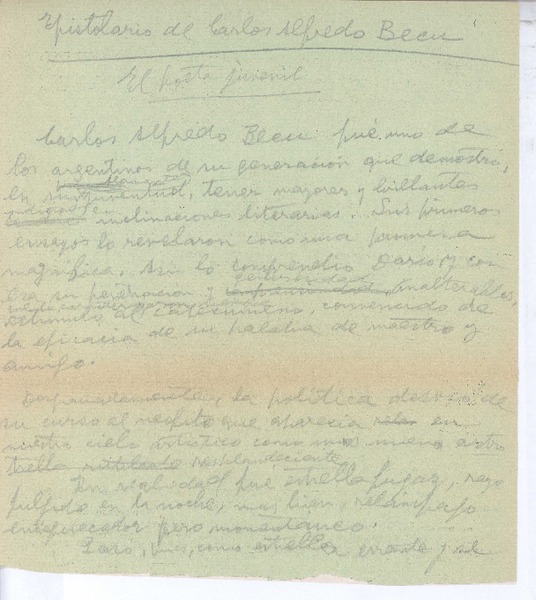 Epistolario de Carlos Alfredo Becu
El poeta juvenil
Carlos Alfredo Becu fué uno de
los argentinos de su generación que demostró,
en su juventud, tener mayores y brillantes
inclinaciones literarias. Sus primeros
ensayos lo revelaron como una promesa
magnífica. Así lo comprendió Darío y con
esa su penetración y inalterables,
estimuló al catecúmeno, convencido de
la eficacia de su palabra de maestro y
amigo.
Desgraciadamente, la política desvió de
su curso al neófito que aparecía en
nuestro cielo artístico como una nueva
estrella rutilante resplandeciente
En realidad fué estrella fugaz, rayo
fúlgido en la noche, mas bien, relámpago
enceguecedor pero momentáneo.
Pasó, pues, como estrella errante y